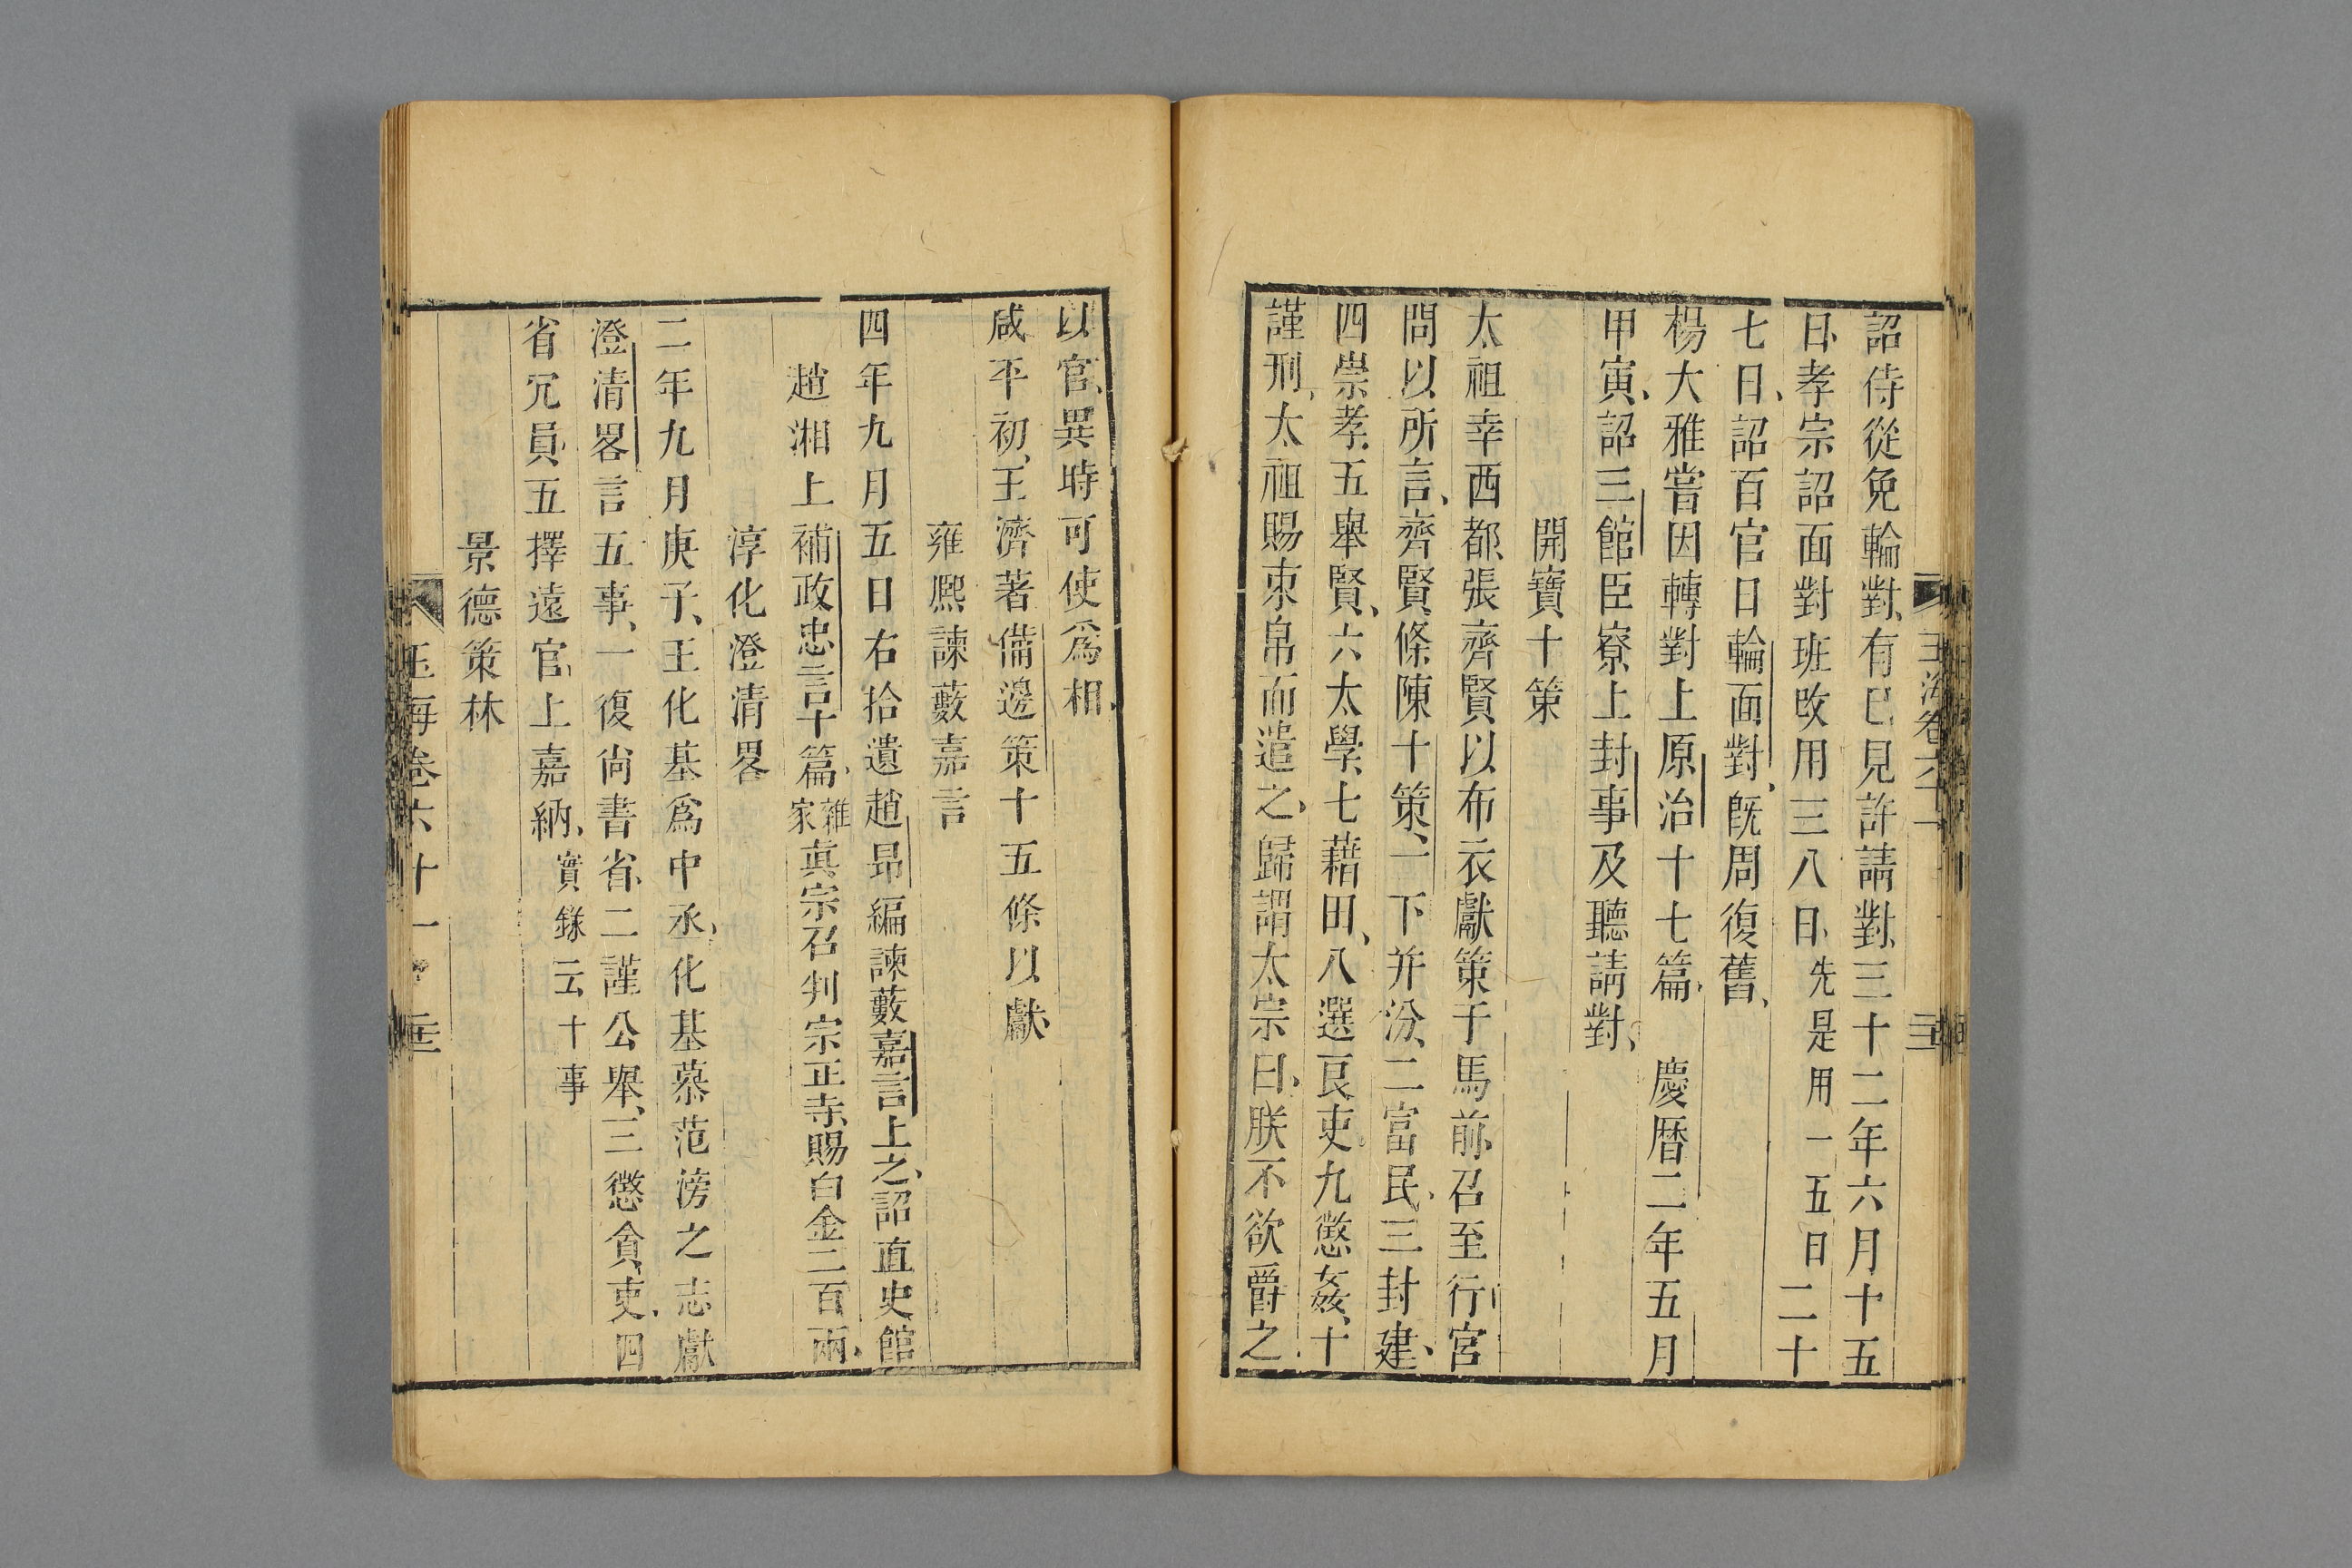 玉海卷六十一
詔侍從免輪對、有已見許請對、三十二年六月十五
日、孝宗詔面對班改用三八日、先是用一五日二十
七日、詔百官日輪面對、旣周復舊、
楊大雅嘗因轉對上原治十七篇、　慶曆二年五月
甲寅、詔三館臣寮上封事及聽請對、
開寶十策
太祖幸西都、張齊賢以布衣獻策于馬前、召至行宮
問以所言、齊賢、條陳十策、一下并汾、二富民、三封建、
四崇孝、五舉賢、六太學、七藉田、八選良吏、九懲姦、十
謹刑、太祖賜束帛而遣之、歸謂太宗曰、朕不欲爵之
以官、異時可使爲相、
咸平初、王濟著備邊策十五條以獻、
雍熙諫藪嘉言
四年九月五日右拾遺趙昂編諫藪嘉言上之、詔直史館
趙湘上補政忠言十篇、雜家眞宗召判宗正寺、賜白金二百兩、
淳化澄清畧
二年九月庚子、王化基爲中丞、化基慕范滂之志獻
澄清畧言五事、一復尙書省、二謹公舉、三懲貪吏、四
省冗員、五擇遠官、上嘉納、實錄云十事
景德策林
玉海卷六十一